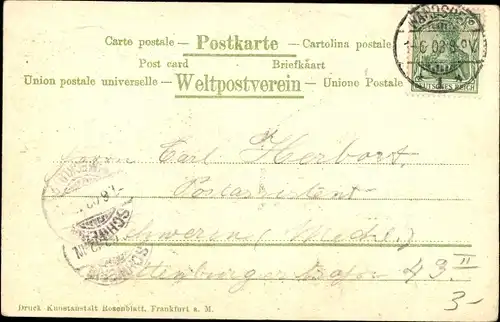 Carte postale — Postkarte — Cartolina postale
Post card Briefkaart
Union postale universelle — Weltpostverein — Unione Postale
DEUTSCHES REICH
Herrn Carl Herbort
Postassistent
Schwerin (Meckl.)
49 II
3-
Druck Kunstanstalt Rosenblatt, Frankfurt a. M.